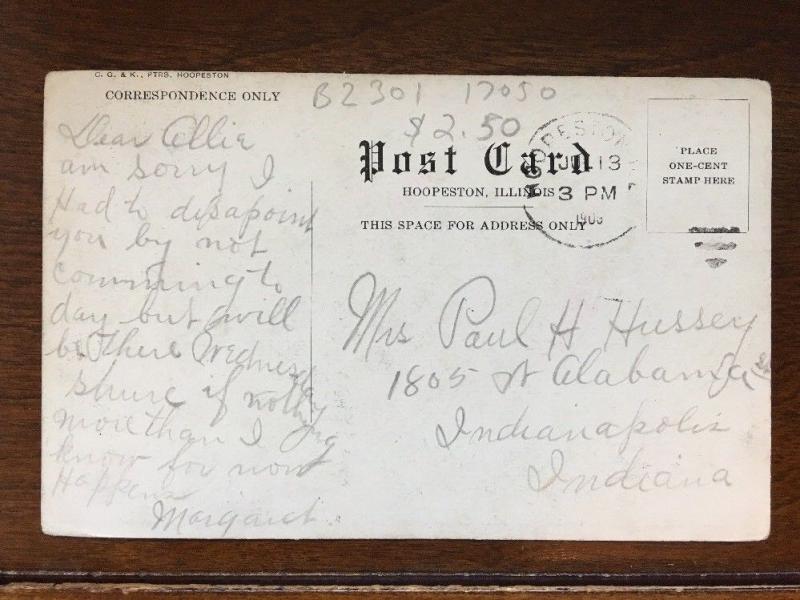 C. G. & K., PTRS, HOOPESTON
CORRESPONDENCE ONLY
B2301 17050
$2.50
Dear Ollie
am sorry I
Had to disapoint
you by not
comming to
day but will
be there Wednesday
shure if nothing
more than I
know for now
Happens
Margaret
Post Card
HOOPESTON, ILLINOIS
THIS SPACE FOR ADDRESS ONLY
HOOPESTON
13
3 PM
PLACE
ONE-CENT
STAMP HERE
Mrs Paul H Hussey
1805 Alabama St
Indianapolis
Indiana